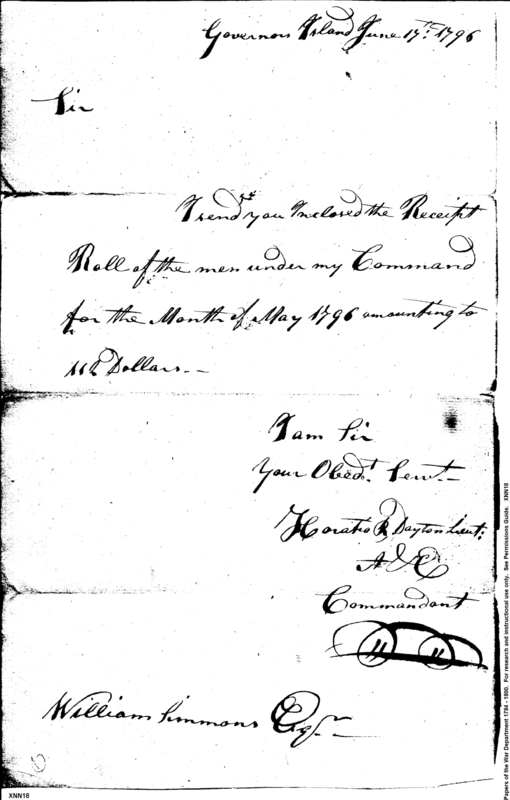 Governors Island June 17th. 1796
Sir
I send you Inclosed the Receipt
Roll of the men under my Command
for the Month of May 1796 amounting to
112 Dollars.–
I am Sir
Your Obedt. Servt.–
Horatio R Dayton Lieut:
A & E
Commandant
William Simmons Esqr.
XNN18
Papers of the War Department 1784 - 1800. For research and instructional use only. See Permissions Guide. XNN18